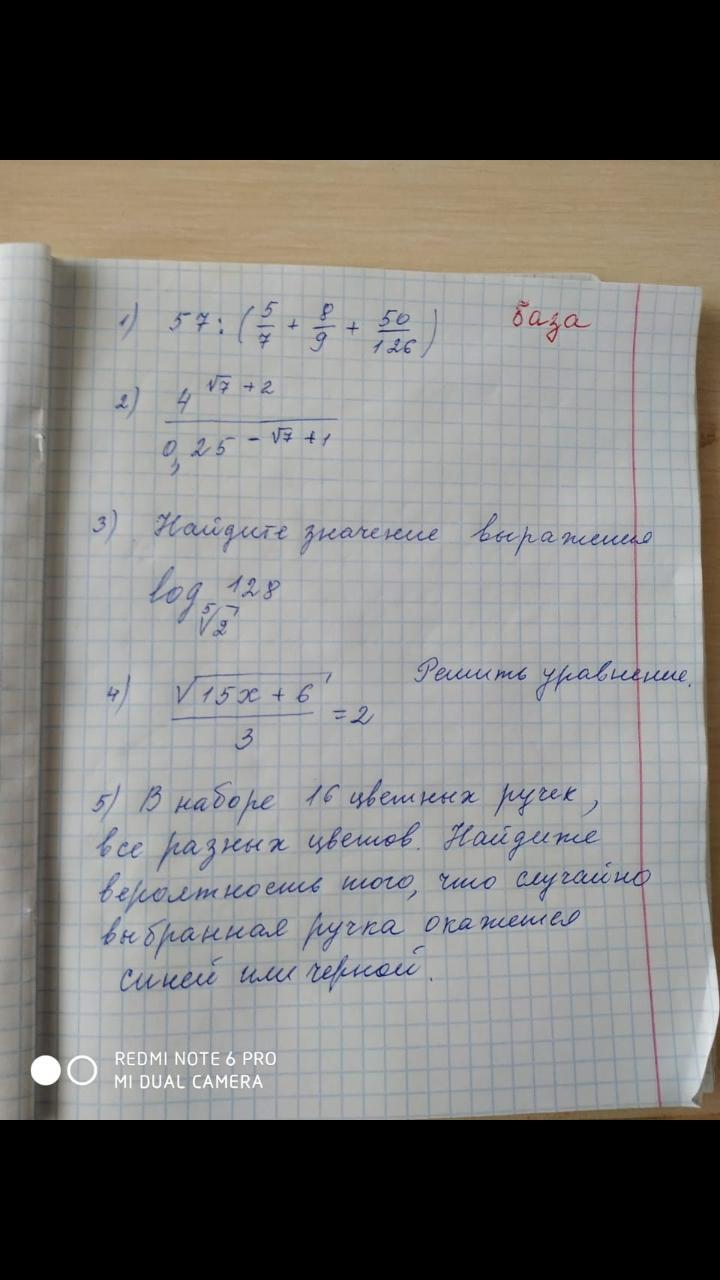 1) 57 : (5/7 + 8/9 + 50/126) база
2) 4^(√7 + 2) / 0,25^(-√7 + 1)
3) Найдите значение выражения
log_(⁵√2) 128
4) √(15x + 6) / 3 = 2 Решить уравнение.
5) В наборе 16 цветных ручек,
все разных цветов. Найдите
вероятность того, что случайно
выбранная ручка окажется
синей или черной.
REDMI NOTE 6 PRO
MI DUAL CAMERA